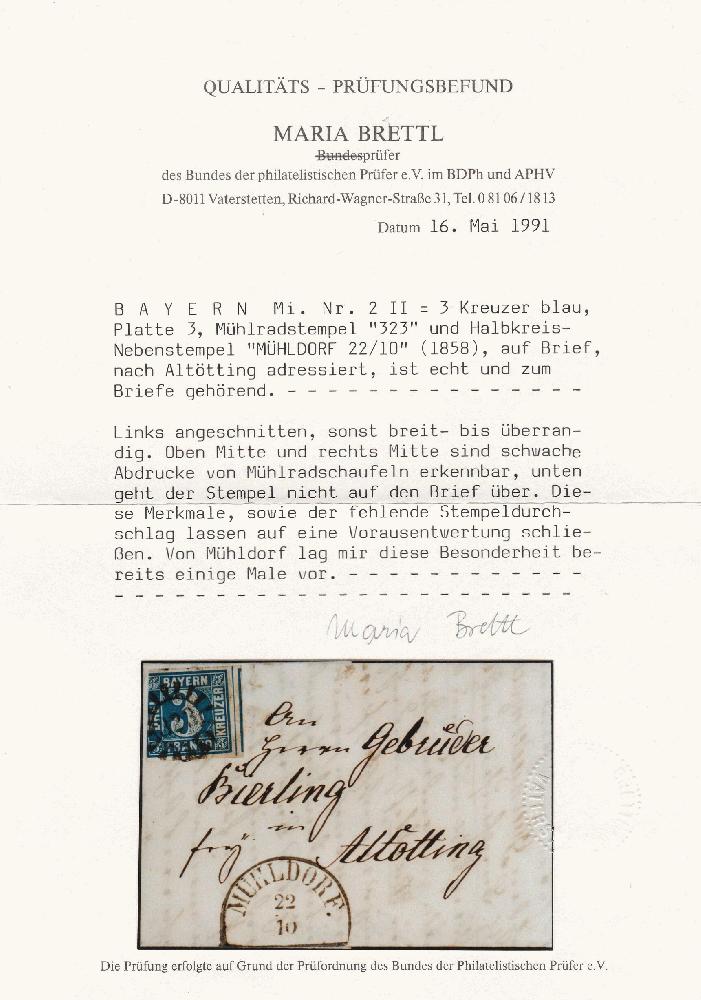 QUALITÄTS – PRÜFUNGSBEFUND
MARIA BRETTL
Bundesprüfer
des Bundes der philatelistischen Prüfer e.V. im BDPh und APHV
D-8011 Vaterstetten, Richard-Wagner-Straße 31, Tel. 0 81 06 / 18 13
Datum 16. Mai 1991
B A Y E R N Mi. Nr. 2 II = 3 Kreuzer blau,
Platte 3, Mühlradstempel "323" und Halbkreis-
Nebenstempel "MÜHLDORF 22/10" (1858), auf Brief,
nach Altötting adressiert, ist echt und zum
Briefe gehörend. - - - - - - - - - - - - - - -
Links angeschnitten, sonst breit- bis überran-
dig. Oben Mitte und rechts Mitte sind schwache
Abdrucke von Mühlradschaufeln erkennbar, unten
geht der Stempel nicht auf den Brief über. Die-
se Merkmale, sowie der fehlende Stempeldurch-
schlag lassen auf eine Vorausentwertung schlie-
ßen. Von Mühldorf lag mir diese Besonderheit be-
reits einige Male vor. - - - - - - - - - - - -
- - - - - - - - - - - - - - - - - - - - - - -
Maria Brettl
BAYERN
KREUZER
3
An
Herrn Gebrüder
Bierling
in
Altötting
MÜHLDORF.
22
10
Die Prüfung erfolgte auf Grund der Prüfordnung des Bundes der Philatelistischen Prüfer e.V.